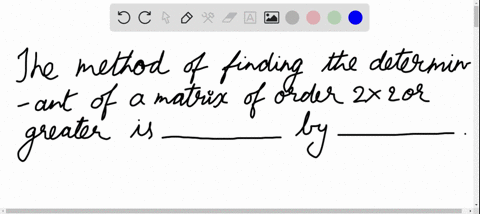 The method of finding the determin
-ant of a matrix of order 2×2 or
greater is __________ by __________.